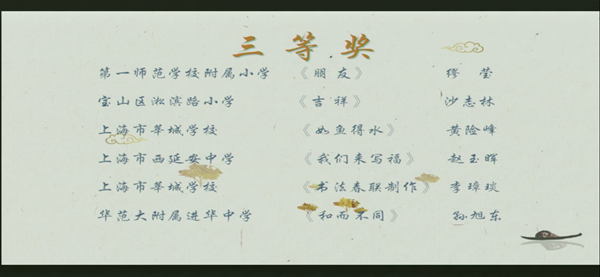 三等奖
第一师范学校附属小学 《朋友》 缪莹
宝山区淞滨路小学 《吉祥》 沙志林
上海市莘城学校 《如鱼得水》 黄险峰
上海市西延安中学 《我们来写福》 赵玉晖
上海市莘城学校 《书法春联制作》 李璋琰
华范大附属进华中学 《和而不同》 孙旭东